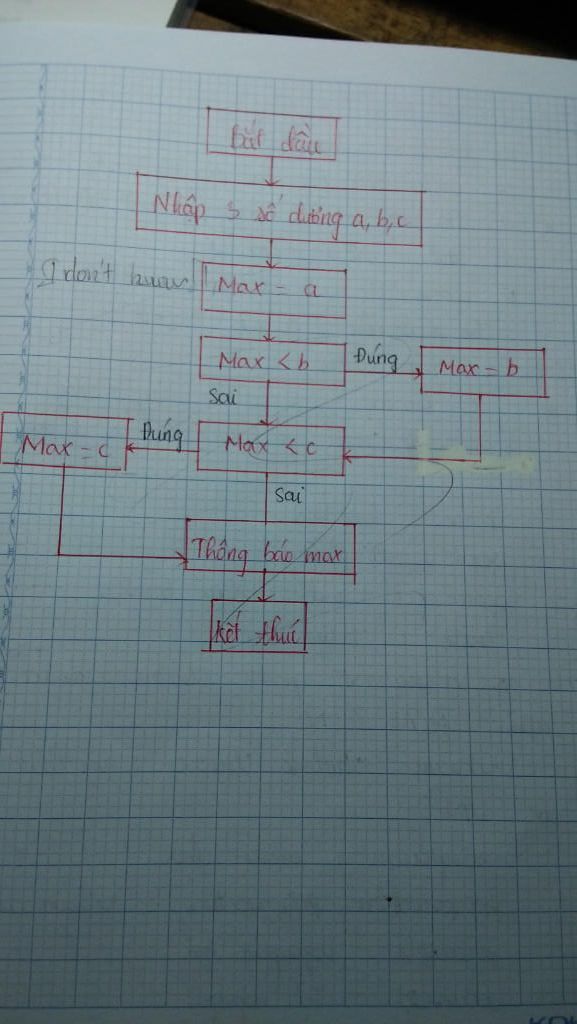 Bắt đầu
Nhập 3 số dương a, b, c
I don't know
Max = a
Max < b
Đúng
Max = b
Sai
Max = c
Đúng
Max < c
Sai
Thông báo max
kết thúc